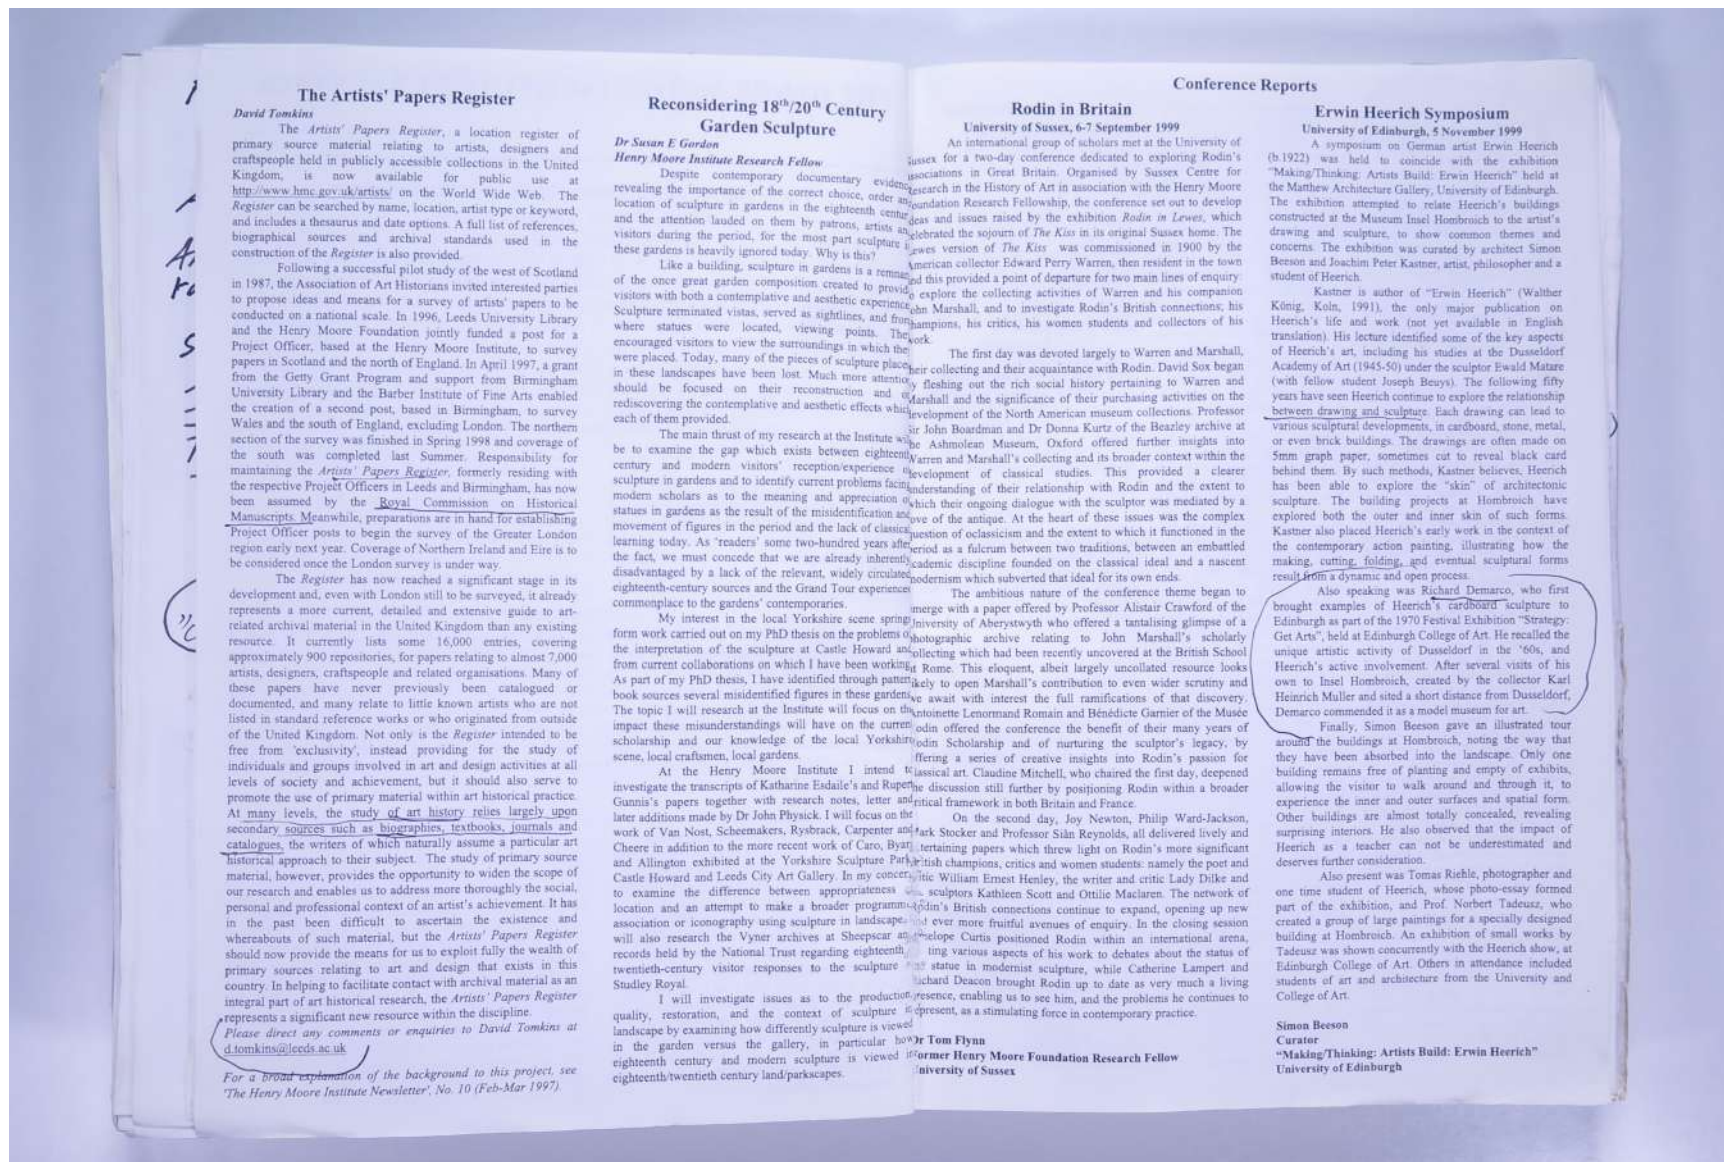 The Artists' Papers Register
David Tomkins
The Artists' Papers Register, a location register of
primary source material relating to artists, designers and
craftspeople held in publicly accessible collections in the United
Kingdom, is now available for public use at
http://www.hmc.gov.uk/artists/ on the World Wide Web. The
Register can be searched by name, location, artist type or keyword,
and includes a thesaurus and date options. A full list of references,
biographical sources and archival standards used in the
construction of the Register is also provided.
Following a successful pilot study of the west of Scotland
in 1987, the Association of Art Historians invited interested parties
to propose ideas and means for a survey of artists' papers to be
conducted on a national scale. In 1996, Leeds University Library
and the Henry Moore Foundation jointly funded a post for a
Project Officer, based at the Henry Moore Institute, to survey
papers in Scotland and the north of England. In April 1997, a grant
from the Getty Grant Program and support from Birmingham
University Library and the Barber Institute of Fine Arts enabled
the creation of a second post, based in Birmingham, to survey
Wales and the south of England, excluding London. The northern
section of the survey was finished in Spring 1998 and coverage of
the south was completed last Summer. Responsibility for
maintaining the Artists' Papers Register, formerly residing with
the respective Project Officers in Leeds and Birmingham, has now
been assumed by the Royal Commission on Historical
Manuscripts. Meanwhile, preparations are in hand for establishing
Project Officer posts to begin the survey of the Greater London
region early next year. Coverage of Northern Ireland and Eire is to
be considered once the London survey is under way.
The Register has now reached a significant stage in its
development and, even with London still to be surveyed, it already
represents a more current, detailed and extensive guide to art-
related archival material in the United Kingdom than any existing
resource. It currently lists some 16,000 entries, covering
approximately 900 repositories, for papers relating to almost 7,000
artists, designers, craftspeople and related organisations. Many of
these papers have never previously been catalogued or
documented, and many relate to little known artists who are not
listed in standard reference works or who originated from outside
of the United Kingdom. Not only is the Register intended to be
free from 'exclusivity', instead providing for the study of
individuals and groups involved in art and design activities at all
levels of society and achievement, but it should also serve to
promote the use of primary material within art historical practice.
At many levels, the study of art history relies largely upon
secondary sources such as biographies, textbooks, journals and
catalogues, the writers of which naturally assume a particular art
historical approach to their subject. The study of primary source
material, however, provides the opportunity to widen the scope of
our research and enables us to address more thoroughly the social,
personal and professional context of an artist's achievement. It has
in the past been difficult to ascertain the existence and
whereabouts of such material, but the Artists' Papers Register
should now provide the means for us to exploit fully the wealth of
primary sources relating to art and design that exists in this
country. In helping to facilitate contact with archival material as an
integral part of art historical research, the Artists' Papers Register
represents a significant new resource within the discipline.
Please direct any comments or enquiries to David Tomkins at
d.tomkins@leeds.ac.uk
For a broad explanation of the background to this project, see
'The Henry Moore Institute Newsletter', No. 10 (Feb-Mar 1997).
Reconsidering 18th/20th Century
Garden Sculpture
Dr Susan E Gordon
Henry Moore Institute Research Fellow
Despite contemporary documentary evidenc
revealing the importance of the correct choice, order an
location of sculpture in gardens in the eighteenth centur
and the attention lauded on them by patrons, artists an
visitors during the period, for the most part sculpture i
these gardens is heavily ignored today. Why is this?
Like a building, sculpture in gardens is a remnan
of the once great garden composition created to provid
visitors with both a contemplative and aesthetic experience
Sculpture terminated vistas, served as sightlines, and from
where statues were located, viewing points. The
encouraged visitors to view the surroundings in which the
were placed. Today, many of the pieces of sculpture place
in these landscapes have been lost. Much more attentio
should be focused on their reconstruction and o
rediscovering the contemplative and aesthetic effects which
each of them provided.
The main thrust of my research at the Institute wil
be to examine the gap which exists between eighteenth
century and modern visitors' reception/experience o
sculpture in gardens and to identify current problems facing
modern scholars as to the meaning and appreciation o
statues in gardens as the result of the misidentification and
movement of figures in the period and the lack of classical
learning today. As 'readers' some two-hundred years after
the fact, we must concede that we are already inherently
disadvantaged by a lack of the relevant, widely circulated
eighteenth-century sources and the Grand Tour experiences
commonplace to the gardens' contemporaries.
My interest in the local Yorkshire scene springs
form work carried out on my PhD thesis on the problems o
the interpretation of the sculpture at Castle Howard and
from current collaborations on which I have been working.
As part of my PhD thesis, I have identified through pattern
book sources several misidentified figures in these gardens.
The topic I will research at the Institute will focus on the
impact these misunderstandings will have on the curren
scholarship and our knowledge of the local Yorkshire
scene, local craftsmen, local gardens.
At the Henry Moore Institute I intend to
investigate the transcripts of Katharine Esdaile's and Rupert
Gunnis's papers together with research notes, letter and
later additions made by Dr John Physick. I will focus on the
work of Van Nost, Scheemakers, Rysbrack, Carpenter and
Cheere in addition to the more recent work of Caro, Byar
and Allington exhibited at the Yorkshire Sculpture Park,
Castle Howard and Leeds City Art Gallery. In my concer
to examine the difference between appropriateness
location and an attempt to make a broader programm
association or iconography using sculpture in landscape,
will also research the Vyner archives at Sheepscar an
records held by the National Trust regarding eighteenth
twentieth-century visitor responses to the sculpture
Studley Royal.
I will investigate issues as to the production,
quality, restoration, and the context of sculpture i
landscape by examining how differently sculpture is viewed
in the garden versus the gallery, in particular how
eighteenth century and modern sculpture is viewed i
eighteenth/twentieth century land/parkscapes.
Conference Reports
Rodin in Britain
University of Sussex, 6-7 September 1999
An international group of scholars met at the University of
Sussex for a two-day conference dedicated to exploring Rodin's
ssociations in Great Britain. Organised by Sussex Centre for
Research in the History of Art in association with the Henry Moore
Foundation Research Fellowship, the conference set out to develop
ideas and issues raised by the exhibition Rodin in Lewes, which
celebrated the sojourn of The Kiss in its original Sussex home. The
Lewes version of The Kiss was commissioned in 1900 by the
American collector Edward Perry Warren, then resident in the town
nd this provided a point of departure for two main lines of enquiry:
o explore the collecting activities of Warren and his companion
ohn Marshall, and to investigate Rodin's British connections; his
hampions, his critics, his women students and collectors of his
work.
The first day was devoted largely to Warren and Marshall,
heir collecting and their acquaintance with Rodin. David Sox began
y fleshing out the rich social history pertaining to Warren and
Marshall and the significance of their purchasing activities on the
development of the North American museum collections. Professor
Sir John Boardman and Dr Donna Kurtz of the Beazley archive at
he Ashmolean Museum, Oxford offered further insights into
Warren and Marshall's collecting and its broader context within the
development of classical studies. This provided a clearer
understanding of their relationship with Rodin and the extent to
which their ongoing dialogue with the sculptor was mediated by a
love of the antique. At the heart of these issues was the complex
question of oclassicism and the extent to which it functioned in the
period as a fulcrum between two traditions, between an embattled
cademic discipline founded on the classical ideal and a nascent
modernism which subverted that ideal for its own ends.
The ambitious nature of the conference theme began to
emerge with a paper offered by Professor Alistair Crawford of the
University of Aberystwyth who offered a tantalising glimpse of a
photographic archive relating to John Marshall's scholarly
ollecting which had been recently uncovered at the British School
at Rome. This eloquent, albeit largely uncollated resource looks
likely to open Marshall's contribution to even wider scrutiny and
we await with interest the full ramifications of that discovery.
Antoinette Lenormand Romain and Bénédicte Garnier of the Musée
Rodin offered the conference the benefit of their many years of
Rodin Scholarship and of nurturing the sculptor's legacy, by
ffering a series of creative insights into Rodin's passion for
classical art. Claudine Mitchell, who chaired the first day, deepened
he discussion still further by positioning Rodin within a broader
critical framework in both Britain and France.
On the second day, Joy Newton, Philip Ward-Jackson,
Mark Stocker and Professor Siân Reynolds, all delivered lively and
tertaining papers which threw light on Rodin's more significant
British champions, critics and women students: namely the poet and
itic William Ernest Henley, the writer and critic Lady Dilke and
sculptors Kathleen Scott and Ottilie Maclaren. The network of
Rodin's British connections continue to expand, opening up new
ever more fruitful avenues of enquiry. In the closing session
nelope Curtis positioned Rodin within an international arena,
ting various aspects of his work to debates about the status of
statue in modernist sculpture, while Catherine Lampert and
ichard Deacon brought Rodin up to date as very much a living
presence, enabling us to see him, and the problems he continues to
epresent, as a stimulating force in contemporary practice.
Dr Tom Flynn
Former Henry Moore Foundation Research Fellow
University of Sussex
Erwin Heerich Symposium
University of Edinburgh, 5 November 1999
A symposium on German artist Erwin Heerich
(b.1922) was held to coincide with the exhibition
"Making/Thinking: Artists Build: Erwin Heerich" held at
the Matthew Architecture Gallery, University of Edinburgh.
The exhibition attempted to relate Heerich's buildings
constructed at the Museum Insel Hombroich to the artist's
drawing and sculpture, to show common themes and
concerns. The exhibition was curated by architect Simon
Beeson and Joachim Peter Kastner, artist, philosopher and a
student of Heerich.
Kastner is author of "Erwin Heerich" (Walther
König, Koln, 1991), the only major publication on
Heerich's life and work (not yet available in English
translation). His lecture identified some of the key aspects
of Heerich's art, including his studies at the Dusseldorf
Academy of Art (1945-50) under the sculptor Ewald Matare
(with fellow student Joseph Beuys). The following fifty
years have seen Heerich continue to explore the relationship
between drawing and sculpture. Each drawing can lead to
various sculptural developments, in cardboard, stone, metal,
or even brick buildings. The drawings are often made on
5mm graph paper, sometimes cut to reveal black card
behind them. By such methods, Kastner believes, Heerich
has been able to explore the "skin" of architectonic
sculpture. The building projects at Hombroich have
explored both the outer and inner skin of such forms.
Kastner also placed Heerich's early work in the context of
the contemporary action painting, illustrating how the
making, cutting, folding, and eventual sculptural forms
result from a dynamic and open process.
Also speaking was Richard Demarco, who first
brought examples of Heerich's cardboard sculpture to
Edinburgh as part of the 1970 Festival Exhibition "Strategy:
Get Arts", held at Edinburgh College of Art. He recalled the
unique artistic activity of Dusseldorf in the '60s, and
Heerich's active involvement. After several visits of his
own to Insel Hombroich, created by the collector Karl
Heinrich Muller and sited a short distance from Dusseldorf,
Demarco commended it as a model museum for art.
Finally, Simon Beeson gave an illustrated tour
around the buildings at Hombroich, noting the way that
they have been absorbed into the landscape. Only one
building remains free of planting and empty of exhibits,
allowing the visitor to walk around and through it, to
experience the inner and outer surfaces and spatial form.
Other buildings are almost totally concealed, revealing
surprising interiors. He also observed that the impact of
Heerich as a teacher can not be underestimated and
deserves further consideration.
Also present was Tomas Riehle, photographer and
one time student of Heerich, whose photo-essay formed
part of the exhibition, and Prof. Norbert Tadeusz, who
created a group of large paintings for a specially designed
building at Hombroich. An exhibition of small works by
Tadeusz was shown concurrently with the Heerich show, at
Edinburgh College of Art. Others in attendance included
students of art and architecture from the University and
College of Art.
Simon Beeson
Curator
"Making/Thinking: Artists Build: Erwin Heerich"
University of Edinburgh